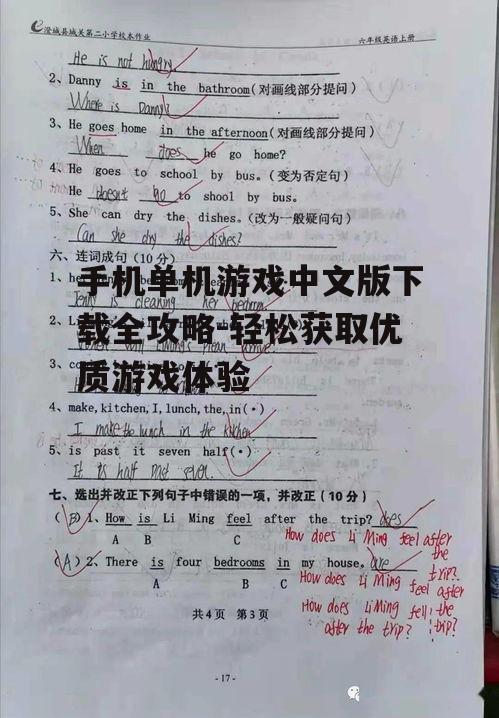 澄城县城关第二小学校本作业 六年级英语上册
He is not hungry
2、Danny is in the bathroom(对画线部分提问)
Where is Danny?
3、He goes home in the afternoon(对画线部分提问)
When does he go home?
4、He goes to school by bus.(变为否定句)
He doesn't go to shool by bus.
5、She can dry the dishes.(改为一般疑问句)
Can she dry the dishes?
六、连词成句(10分)
手机单机游戏中文版下
载全攻略-轻松获取优
质游戏体验
1、
is cleaning her bedroom
2、
3、
4、make,kitchen,I,lunch,the,in(·)
I make the lunch in the kitchen
5、is past it seven half(·)
It is half past seven.
七、选出并改正下列句子中错误的一项，并改正(10分)
(B)1、How is Li Ming feel after the trip? does
A B C
How does Li Ming feel after the trip?
(A)2、There is four bedrooms in my house. are
A B C
How does Li Ming feel after the trip?
How does Li Ming fell after the trip?
共4页 第3页
-17-